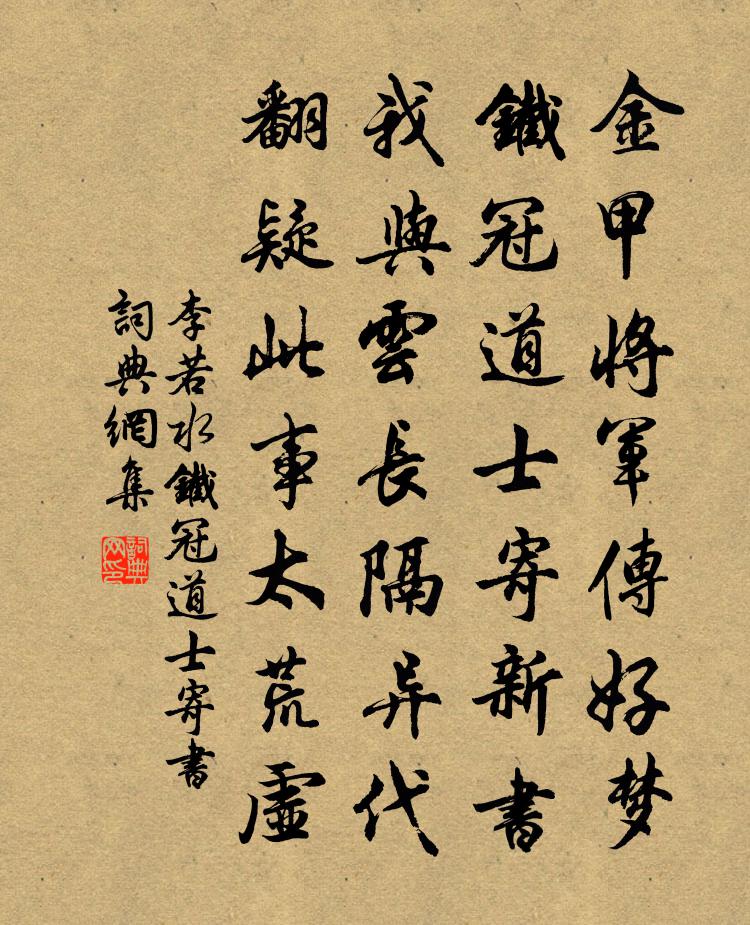 金甲將軍傳好梦
鐵冠道士寄新書
我與雲長隔异代
翻疑此事太荒虛
李若水鐵冠道士寄書
詞典網集
詞典网印